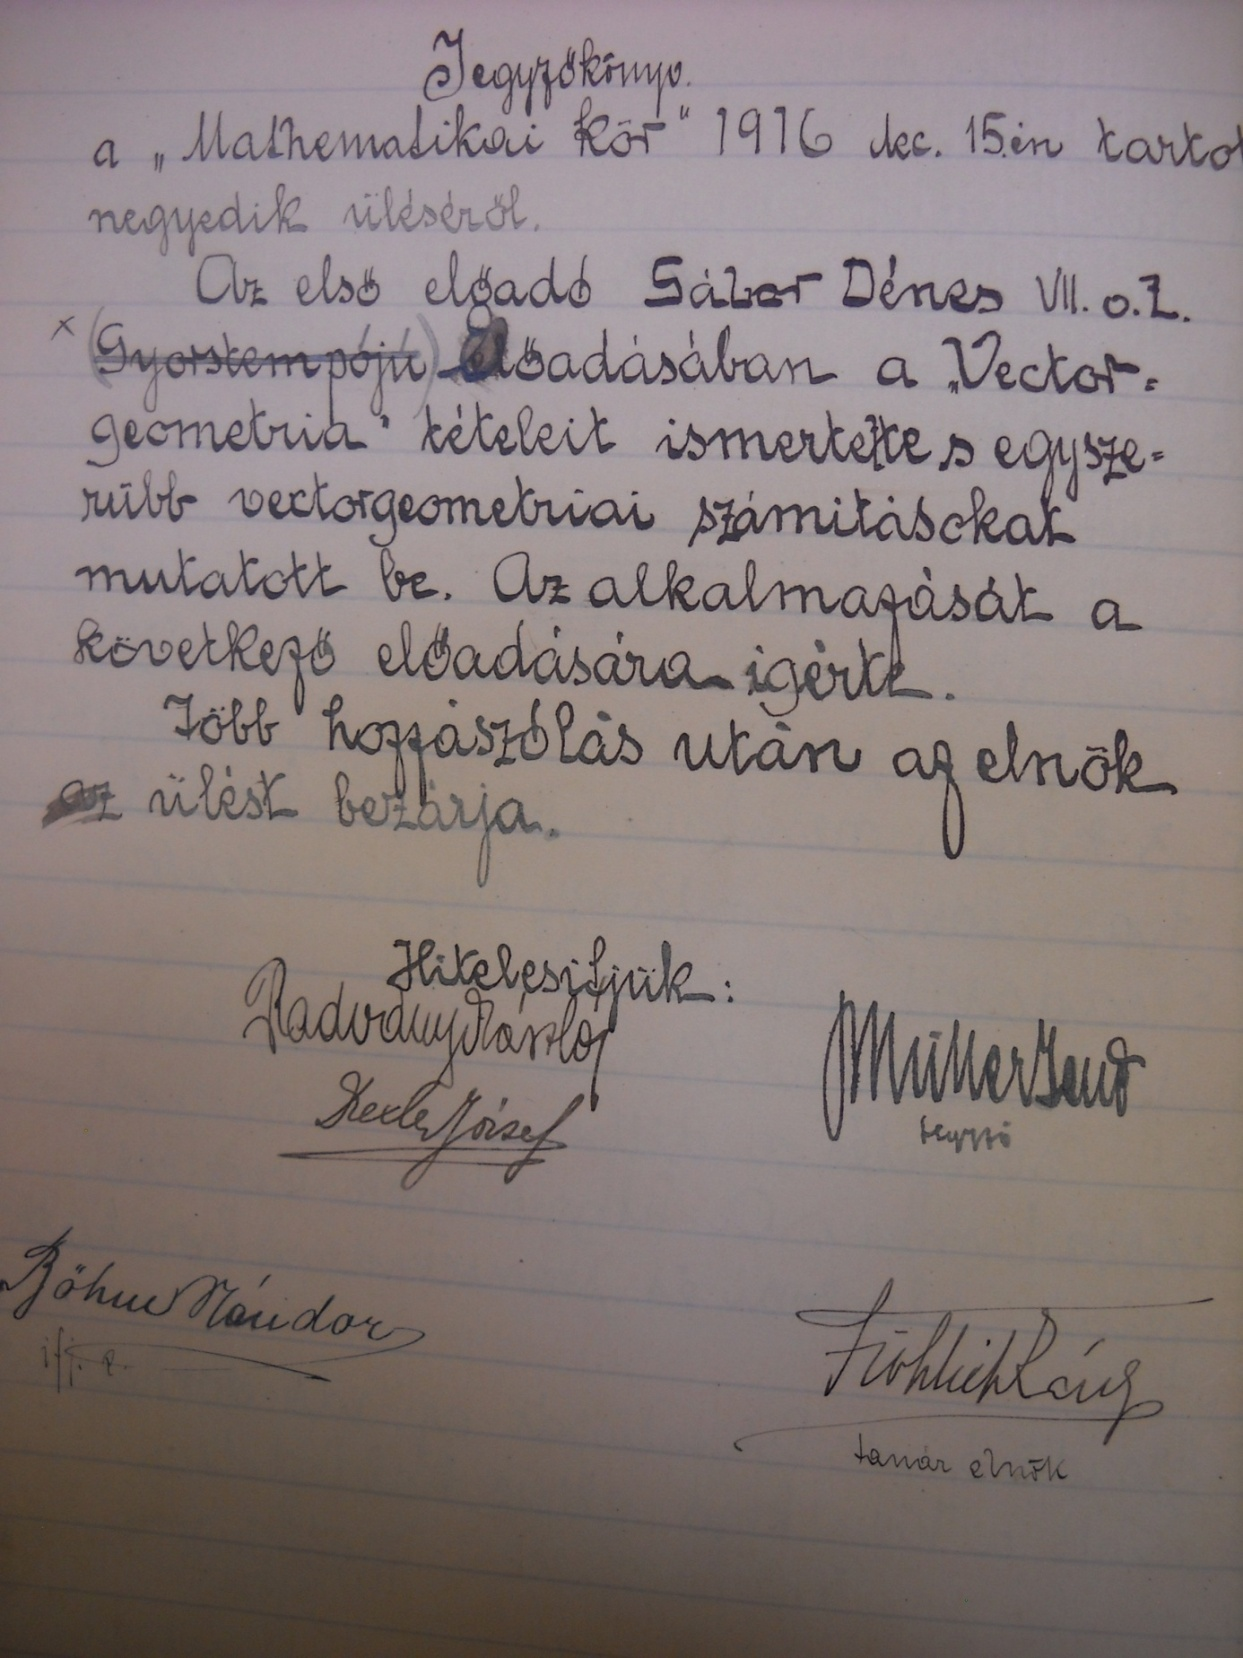 Jegyzőkönyv.
a „Mathematikai Kör" 1916 dec. 15.én tartot
negyedik üléséről.
Az első előadó Gábor Dénes VII. o. t.
x (Gyorstempójú) Előadásában a „Vector=
geometria" tételeit ismertette s egysze=
rübb vectorgeometriai számitásokat
mutatott be. Az alkalmazását a
következő előadására igérte.
Több hozzászólás után az elnök
az ülést bezárja.
Hitelesitjük:
Radványi László
József
Müller Jenő
jegyző
Böhm Nándor
ifj. e.
Fröhlich Károly
tanár elnök